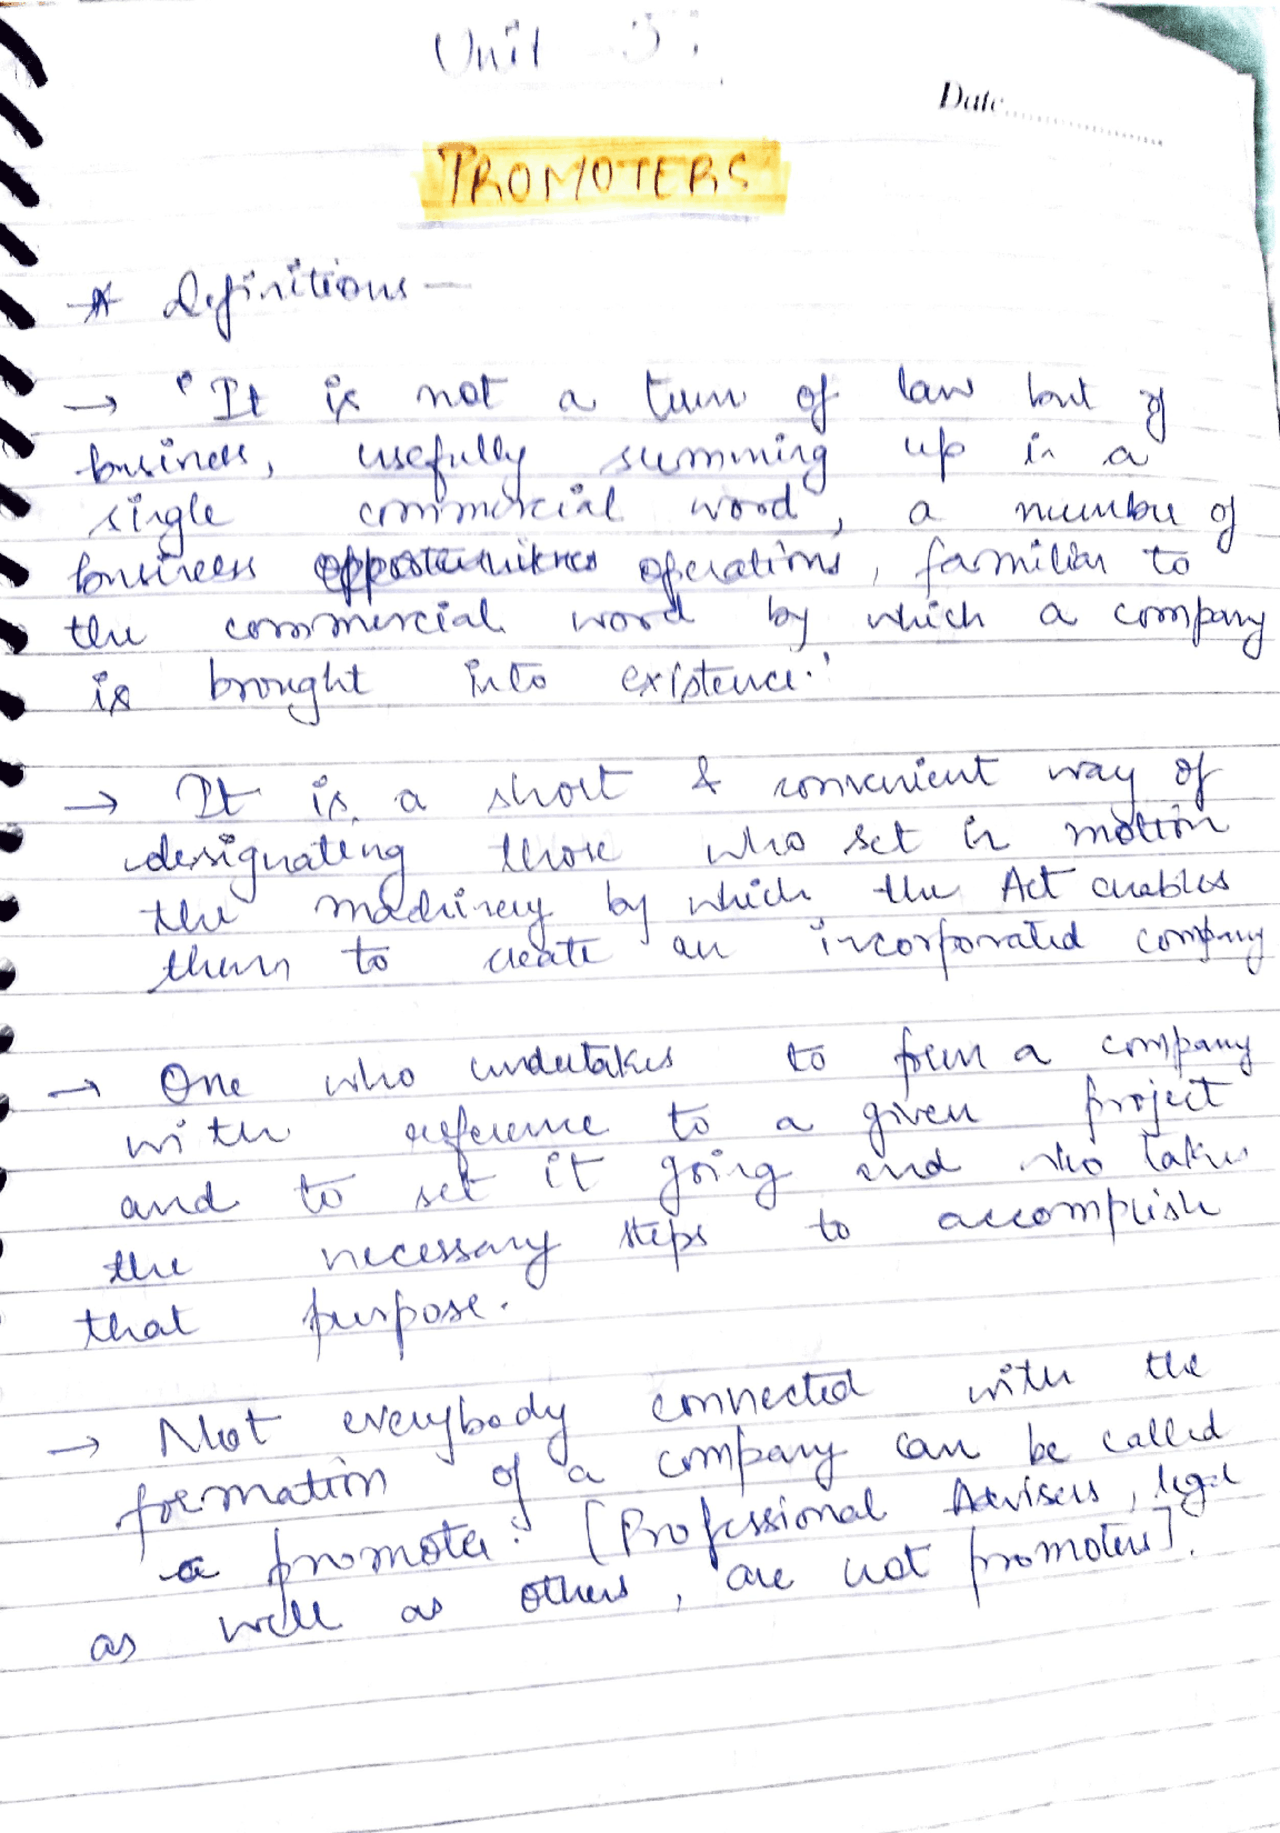 Unit - 3.
Date
PROMOTERS
* Definitions —
→ 'It is not a term of law but of
business, usefully summing up in a
single commercial word, a number of
business opportunities operations, familiar to
the commercial word by which a company
is brought into existence.'
→ It is a short & convenient way of
designating those who set in motion
the machinery by which the Act enables
them to create an incorporated company
→ One who undertakes to form a company
with reference to a given project
and to set it going and who takes
the necessary steps to accomplish
that purpose.
→ Not everybody connected with the
formation of a company can be called
a promoter. [Professional Advisers, legal
as well as others, are not promoters].